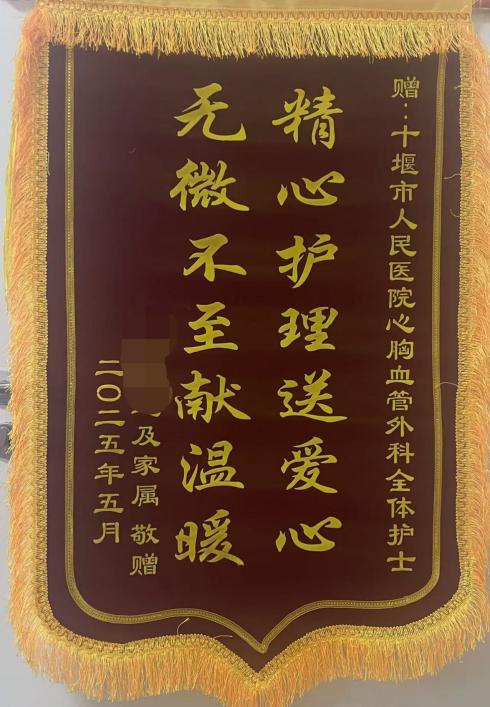 赠：十堰市人民医院心胸血管外科全体护士
精心护理送爱心
无微不至献温暖
及家属 敬赠
二〇二五年五月